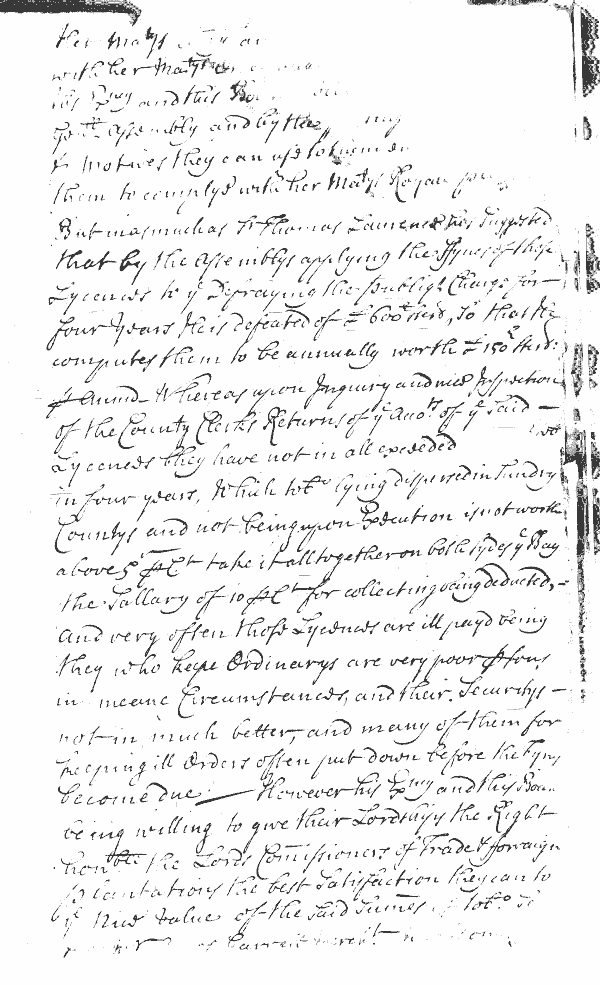 her Maty's
with her Maty's
his Exncy and this
Genll Assembly and by the
& motives they can use to
them to comply with her Matys Royall
But inasmuch as Sr Thomas Laurence has Suggested
that by the Assemblys applying the ffynes of those
Lycences to ye Defraying the publick Charge for
four years He is defeated of £600 sterd, So that He
computes them to be annually worth £150 sterd:
p Annum Whereas upon Inquiry and nice Inspection
of the County Clerks Returns of ye Acco.ts of ye Said
Lycences they have not in all exceeded
in four years, Which tobo lying dispersed in Sundry
Countys and not being upon Execution is not worth
above 5s p Ct take it all together on both sydes ye Bay
the Sallary of 10 p Ct for collecting being deducted,
And very often those Lycences are ill payd being
they who keepe Ordinarys are very poor psons
in meane Circumstances, and their Securitys
not in much better, and many of them for
keeping ill Orders often put down before the fyns
become due — However his Exncy and this Boa
being willing to give their Lordshipps the Right
honble the Lords Comissioners of Trade & forraign
plantations the best Satisfaction they can to
ye Nice Value of the said Sumes of tobo